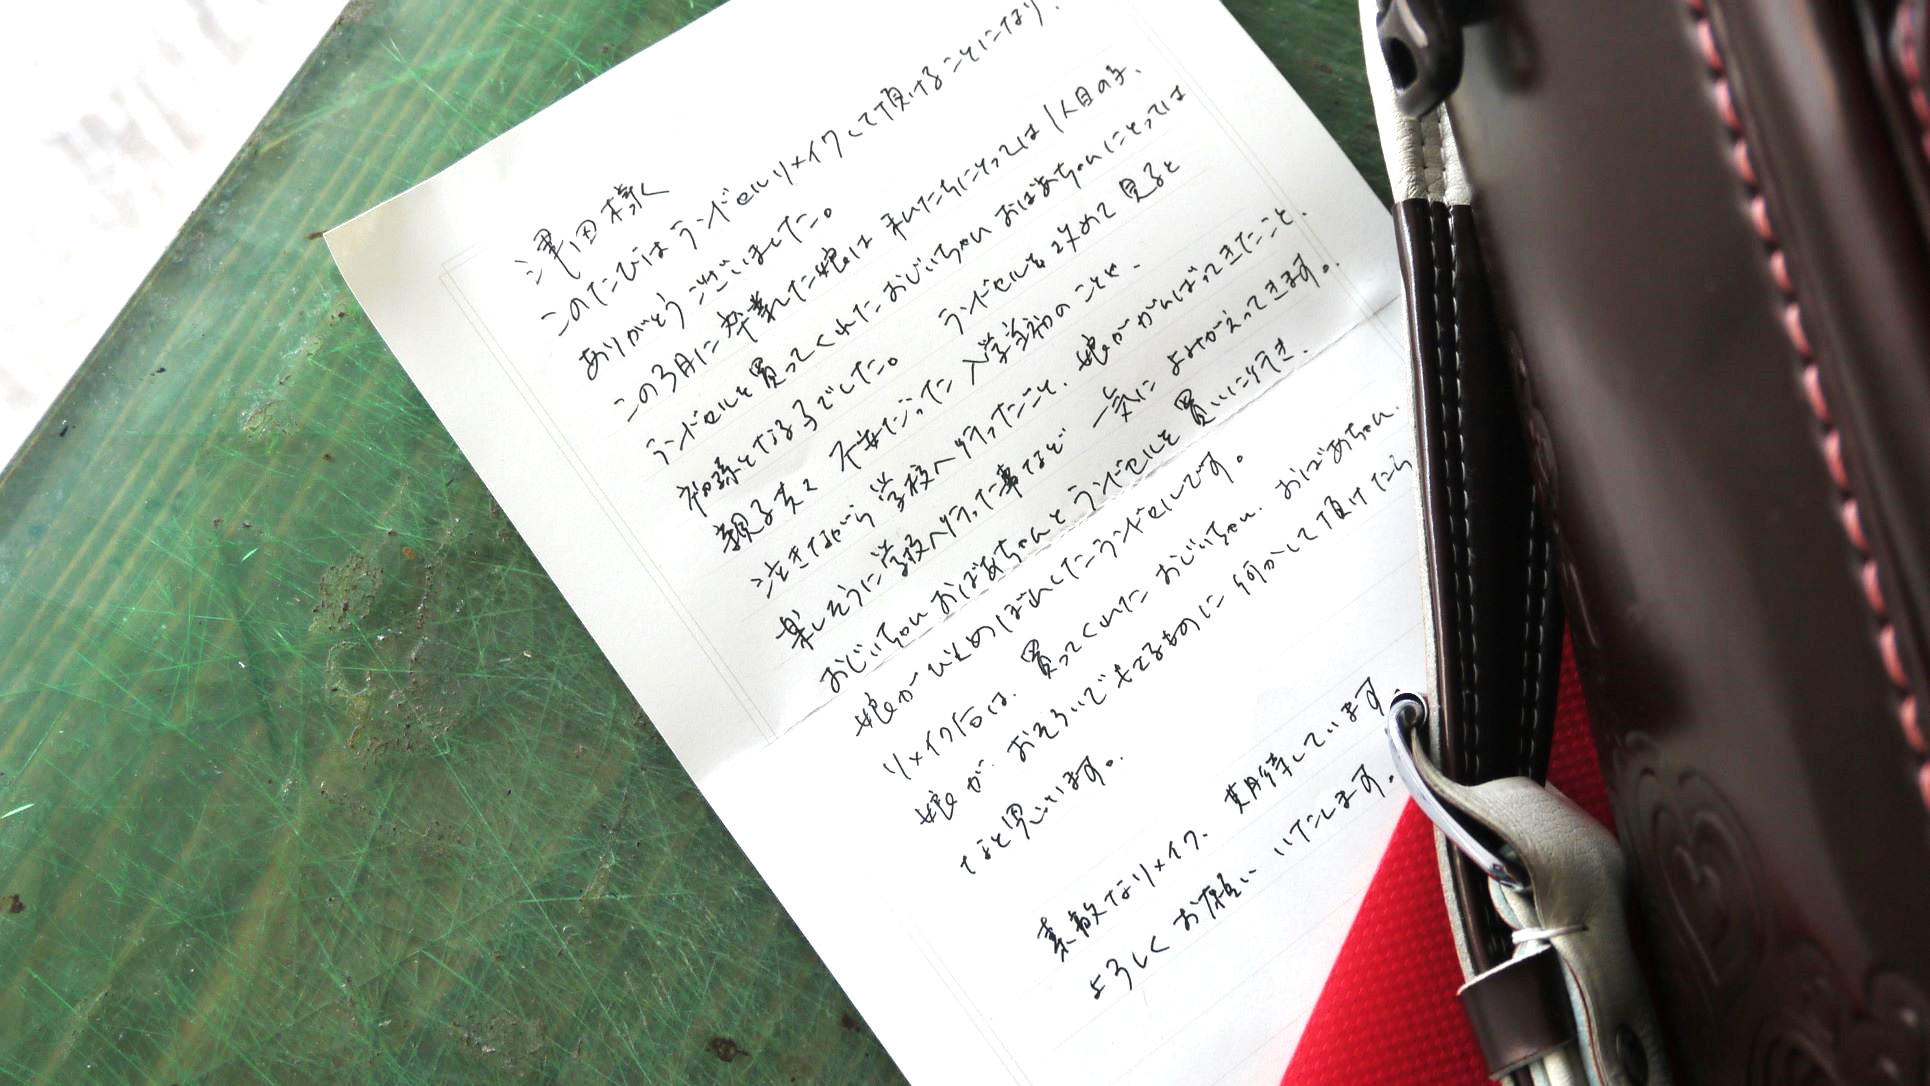 津田様へ
このたびはランドセルリメイクして頂けることになり、
ありがとうございました。
この3月に卒業した娘は私たちにとっては1人目の子、
ランドセルを買ってくれたおじいちゃんおばあちゃんにとっては
初孫となる子でした。ランドセルを改めて見ると
親子共々不安だった入学当初のことや、
泣きながら学校へ行ったこと、娘ががんばってきたこと、
楽しそうに学校へ行った事など一気によみがえってきます。
おじいちゃんおばあちゃんとランドセルを買いに行き、
娘がひとめぼれしたランドセルです。
リメイク后は、買ってくれたおじいちゃん、おばあちゃん、
娘が、おそろいでもてるものに何かして頂けたら
なと思います。
素敵なリメイク、期待しています。
よろしくお願いいたします。